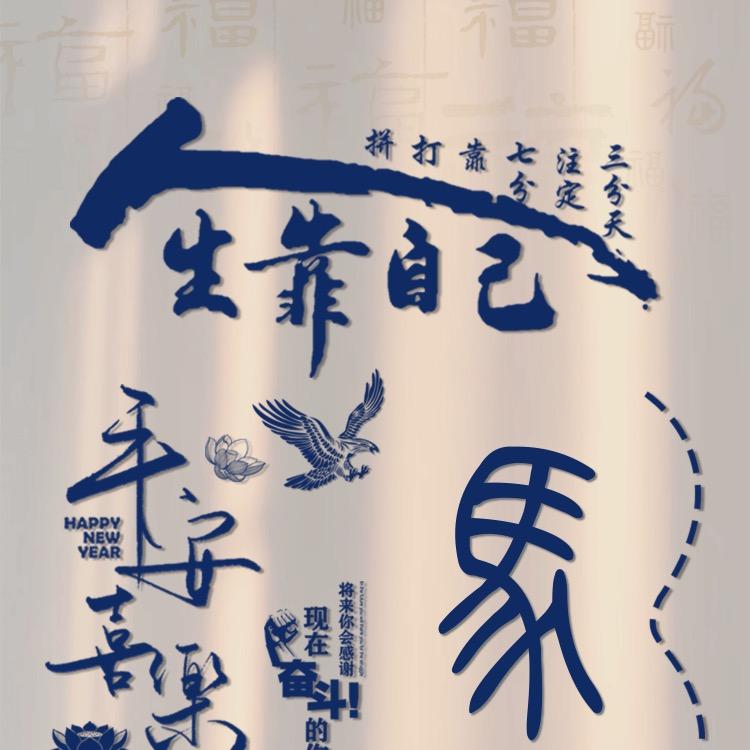 三分天
注定
七分
靠
打
拼
人生靠自己
平安
HAPPY
NEW
YEAR
喜樂
将来你会感谢
现在
奋斗!
的
馬
福
福
福
福
福
福
福
福